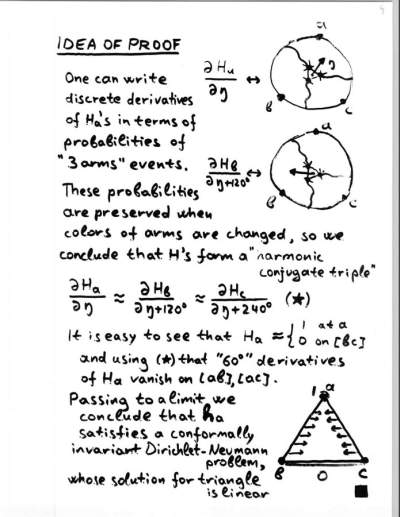 IDEA OF PROOF
One can write
discrete derivatives
of Ha's in terms of
probabilities of
"3 arms" events.
These probabilities
are preserved when
colors of arms are changed, so we
conclude that H's form a "harmonic
conjugate triple"
∂Ha/∂η ↔
a
η
b
c
∂Hb/∂η+120° ↔
a
b
c
∂Ha/∂η ≈ ∂Hb/∂η+120° ≈ ∂Hc/∂η+240° (*)
It is easy to see that Ha ≈ { 1 at a
0 on [bc]
and using (*) that "60°" derivatives
of Ha vanish on [ab], [ac].
Passing to a limit we
conclude that ha
satisfies a conformally
invariant Dirichlet-Neumann
problem,
whose solution for triangle
is linear
1 a
b
0
c